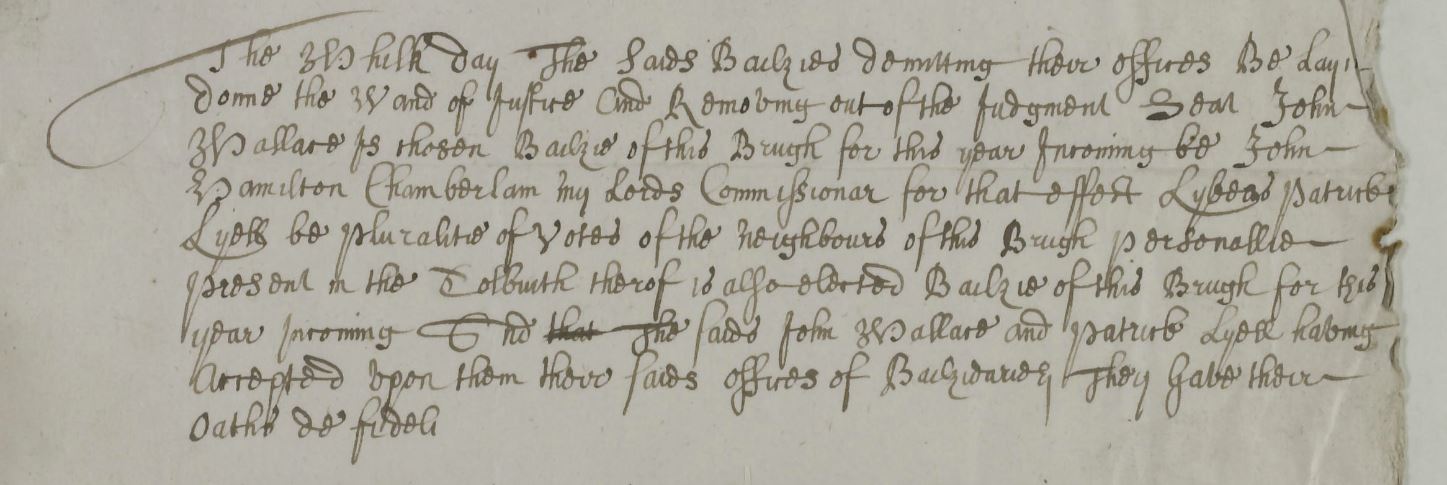 The Whilk day The saids Bailzies demitting their offices Be layi
doune the Wand of Justice And Removing out of the Judgment Seat John
Wallace Is chosen Bailzie of this Brugh for this year Incoming be John
Hamilton Chamberlain my Lords Commissionar for that effect Lykeas Patrick
Lyell be pluralitie of votes of the neighbours of this Brugh personallie
present in the Tolbuith therof is also elected Bailzie of this Brugh for this
year incoming And that The saids John Wallace and patrick Lyell having
Accepted upon them their saids offices of Bailziaries They gave their
Oaths de fideli